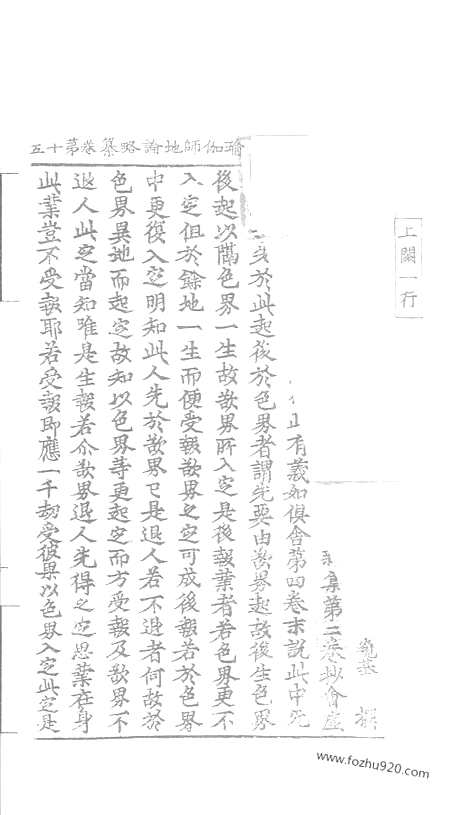 瑜伽師地論略纂卷第十五
上闕一行
基 撰
集第二卷抄會
正有義如俱舍第四卷末說此中先
於此起後於色界者謂先要由欲界起故後生色界
後起以隔色界一生故欲界所入定是後報業者若色界更不
入定但於餘地一生而便受報欲界之定可成後報若於色界
中更復入定明知此人先於欲界已是退人若不退者何故於
色界異地而起定故知以色界等更起定而方受報及欲界不
退人此定當知唯是生報若尒欲界退人先得之定思業在身
此業豈不受報耶若受報即應一千劫受彼果以色界入定此定是
www.fozhu920.com